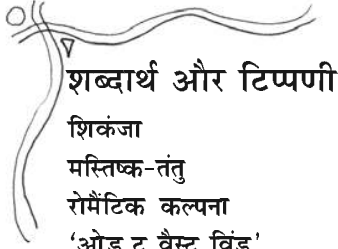 शब्दार्थ और टिप्पणी
शिकंजा
मस्तिष्क-तंतु
रोमैंटिक कल्पना
'ओड टु वैस्ट विंड'